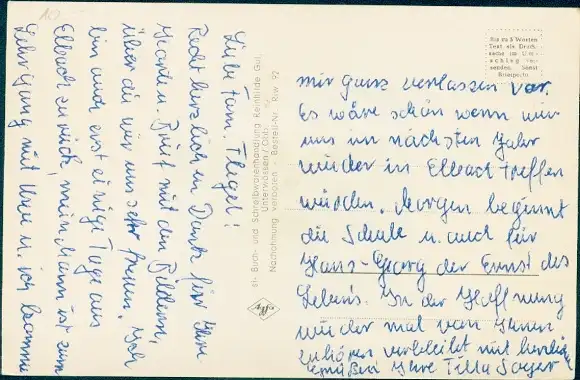 Liebe Fam. Flegel!
Recht herzlichen Dank für Ihre
Karte u. Brief mit den Bildern,
über die wir uns sehr freuen. Ich
bin auch erst einige Tage aus
Elbach zurück, mein Mann ist zum
Lehrgang mit Uwe u. ich komme
mir ganz verlassen vor.
Es wäre schön wenn wir
uns im nächsten Jahr
wieder in Elbach treffen
würden. Morgen beginnt
die Schule u. auch für
Hans-Georg der Ernst des
Lebens. In der Hoffnung
wieder mal von Ihnen
zu hören verbleibt mit herzlichen
Grüßen Ihre Tilla
Buch- und Schreibwarenhandlung
Unterwössen/Obb.
Nachahmung verboten - Bestell-Nr. R.w. 92
Agfa
Bis zu 5 Worten
Text als Druck-
sache im Um-
schlag ver-
senden. Sonst
Briefporto